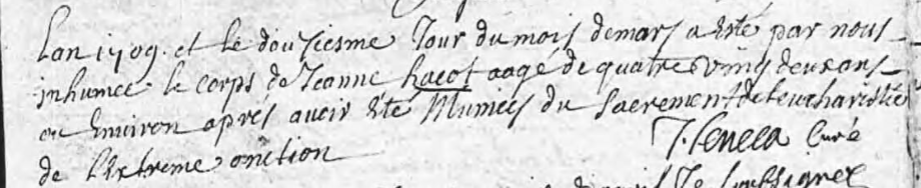 Lan 1709. et le dousiesme Jour du mois de mars a esté par nous
inhumee le corps de Jeanne hacot aagé de quatre vings deux ans
ou Environ aprés avoir été Munies du Sacrement de Leucharistie
de l'extreme onction
Curé